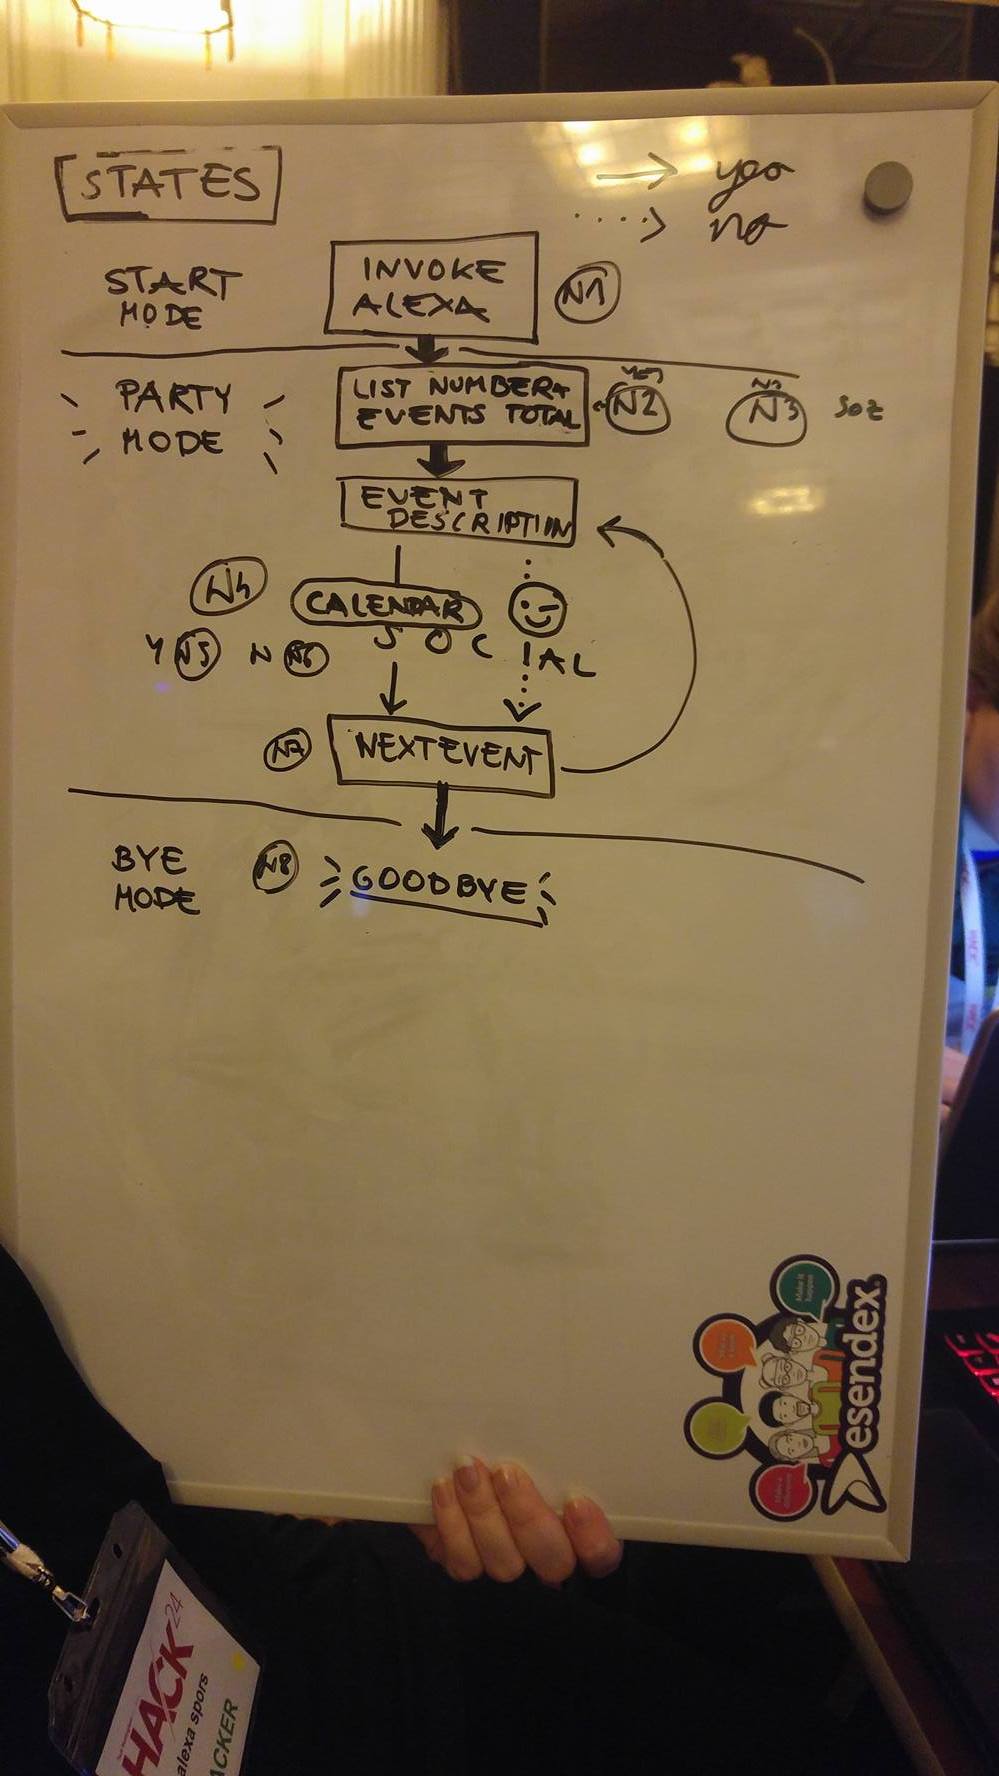 STATES
yes
no
START
MODE
INVOKE
ALEXA
N1
PARTY
MODE
LIST NUMBER+
EVENTS TOTAL
YES
N2
NO
N3
EVENT
DESCRIPTION
N4
CALENDAR
SOCIAL
Y N5 N N6
N7
NEXT EVENT
BYE
MODE
N8
GOODBYE
esendex
HACK24
alexa spors
ACKER